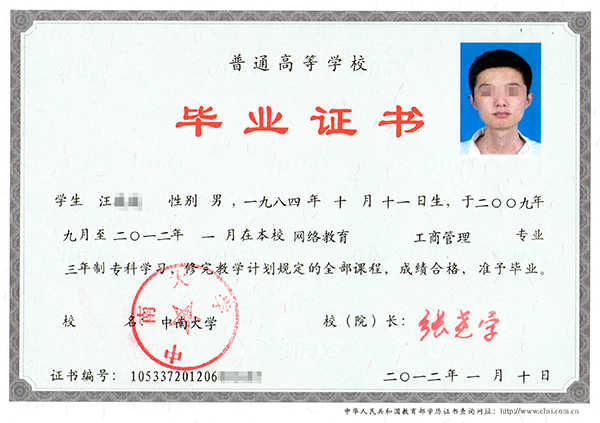 普通高等学校
毕业证书
学生 汪 性别 男，一九八四年 十 月 十一日生，于二〇〇九年
九月至二〇一二年 一 月在本校 网络教育 工商管理 专业
三年制专科学习，修完教学计划规定的全部课程，成绩合格，准予毕业。
校 名：中南大学 校（院）长：张尧学
中南大学
证书编号：105337201206 二〇一二年 一 月 十 日
中华人民共和国教育部学历证书查询网址：http://www.chsi.com.cn